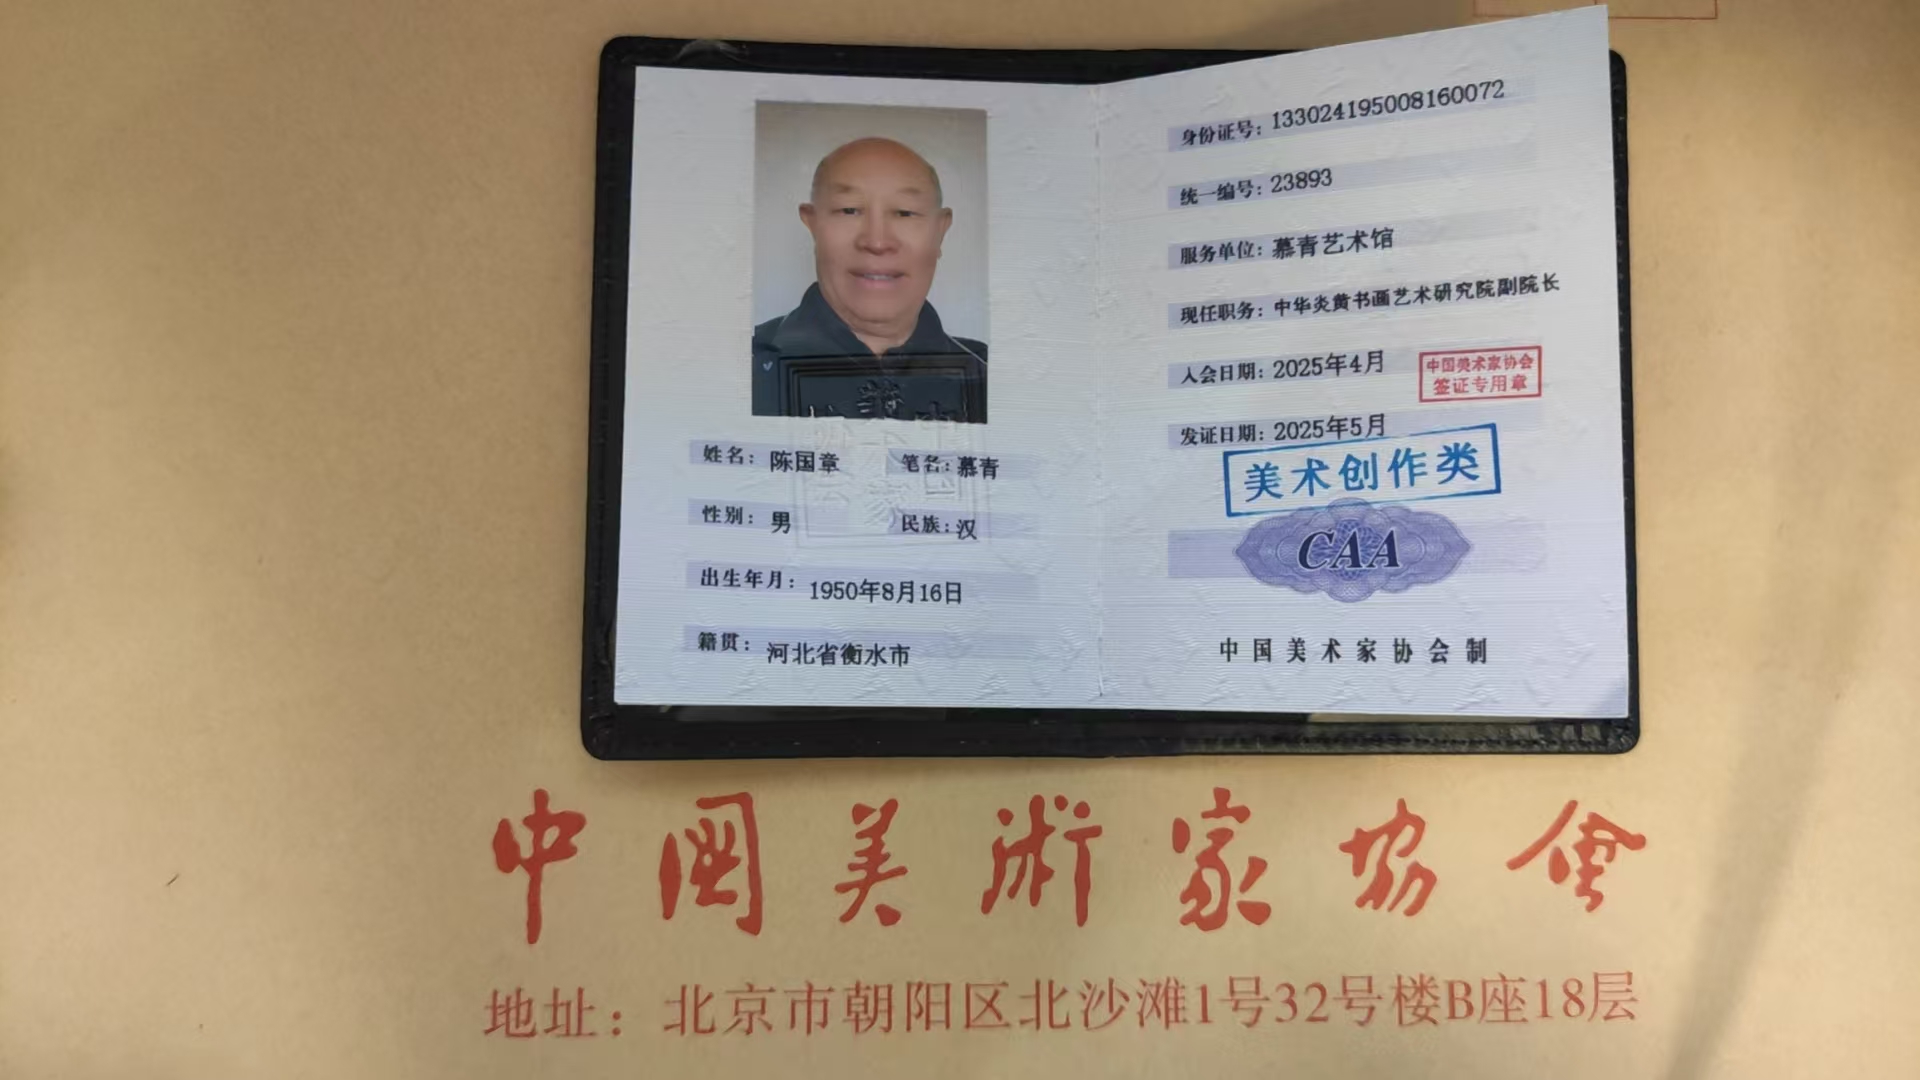 姓名：陈国章 笔名：慕青
性别：男 民族：汉
出生年月：1950年8月16日
籍贯：河北省衡水市
身份证号：133024195008160072
统一编号：23893
服务单位：慕青艺术馆
现任职务：中华炎黄书画艺术研究院副院长
入会日期：2025年4月
中国美术家协会
签证专用章
发证日期：2025年5月
美术创作类
CAA
中国美术家协会制
中國美術家協會
地址：北京市朝阳区北沙滩1号32号楼B座18层